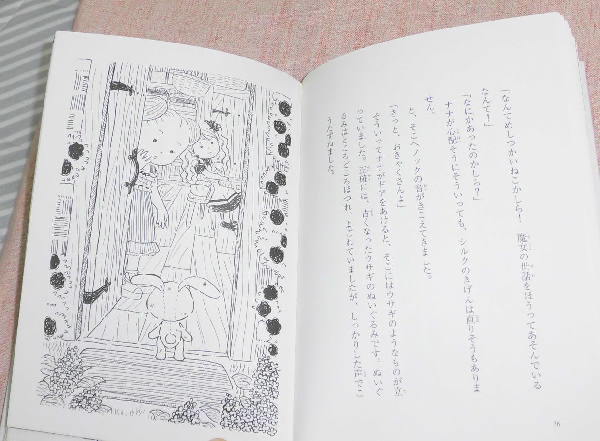 「なんてめしつかいねこかしら！ 魔女の世話をほうってあそんでいる
なんて！」
「なにかあったのかしら？」
ナナが心配そうにそういっても、シルクのきげんは直りそうもありま
せん。
と、そこへノックの音がきこえてきました。
「きっと、おきゃくさんよ」
そういってナナがドアをあけると、そこにはウサギのようなものが立
っていました。正確には、古くなったウサギのぬいぐるみです。ぬいぐ
るみはところどころほつれ、よごれていましたが、しっかりした声でこ
うたずねました。
16